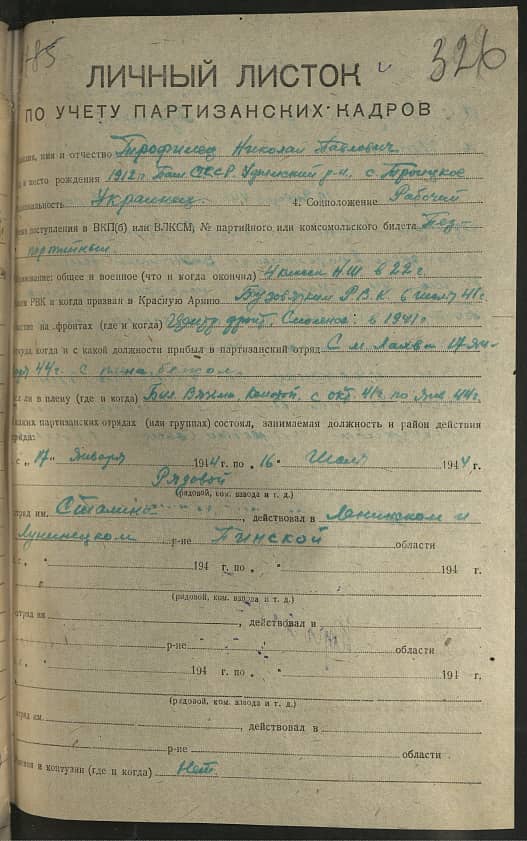 326
ЛИЧНЫЙ ЛИСТОК
ПО УЧЕТУ ПАРТИЗАНСКИХ КАДРОВ
имя и отчество Трофимец Николай Павлович
место рождения 1912 г. Баш. СССР р-н, с. Троицкое
Украинец 4. Соцположение Рабочий
вступления в ВКП(б) или ВЛКСМ, № партийного или комсомольского билета Без-
партийный
общее и военное (что и когда окончил) 4 класса Н.Ш. в 22 г.
РВК и когда призван в Красную Армию Р.В.К. в 41 г.
на фронтах (где и когда) Центр. фронт. Смоленск. в 1941 г.
когда и с какой должности прибыл в партизанский отряд С м. 17 Ян-
44 г. с
ли в плену (где и когда) Был Вязьма, с окт. 41 г. по Янв. 44 г.
партизанских отрядах (или группах) состоял, занимаемая должность и район действия
с „ 17 " Января 1944 г. по „ 16 " Июля 1944 г.
Рядовой
(рядовой, ком. взвода и т. д.)
им. Сталина, действовал в Ленинском и
Лунинецком р-не Пинской области
194 г. по „ " 194 г.
(рядовой, ком. взвода и т. д.)
им. , действовал в
р-не области
194 г. по „ " 194 г.
(рядовой, ком. взвода и т. д.)
им. , действовал в
р-не области
и контузии (где и когда) Нет